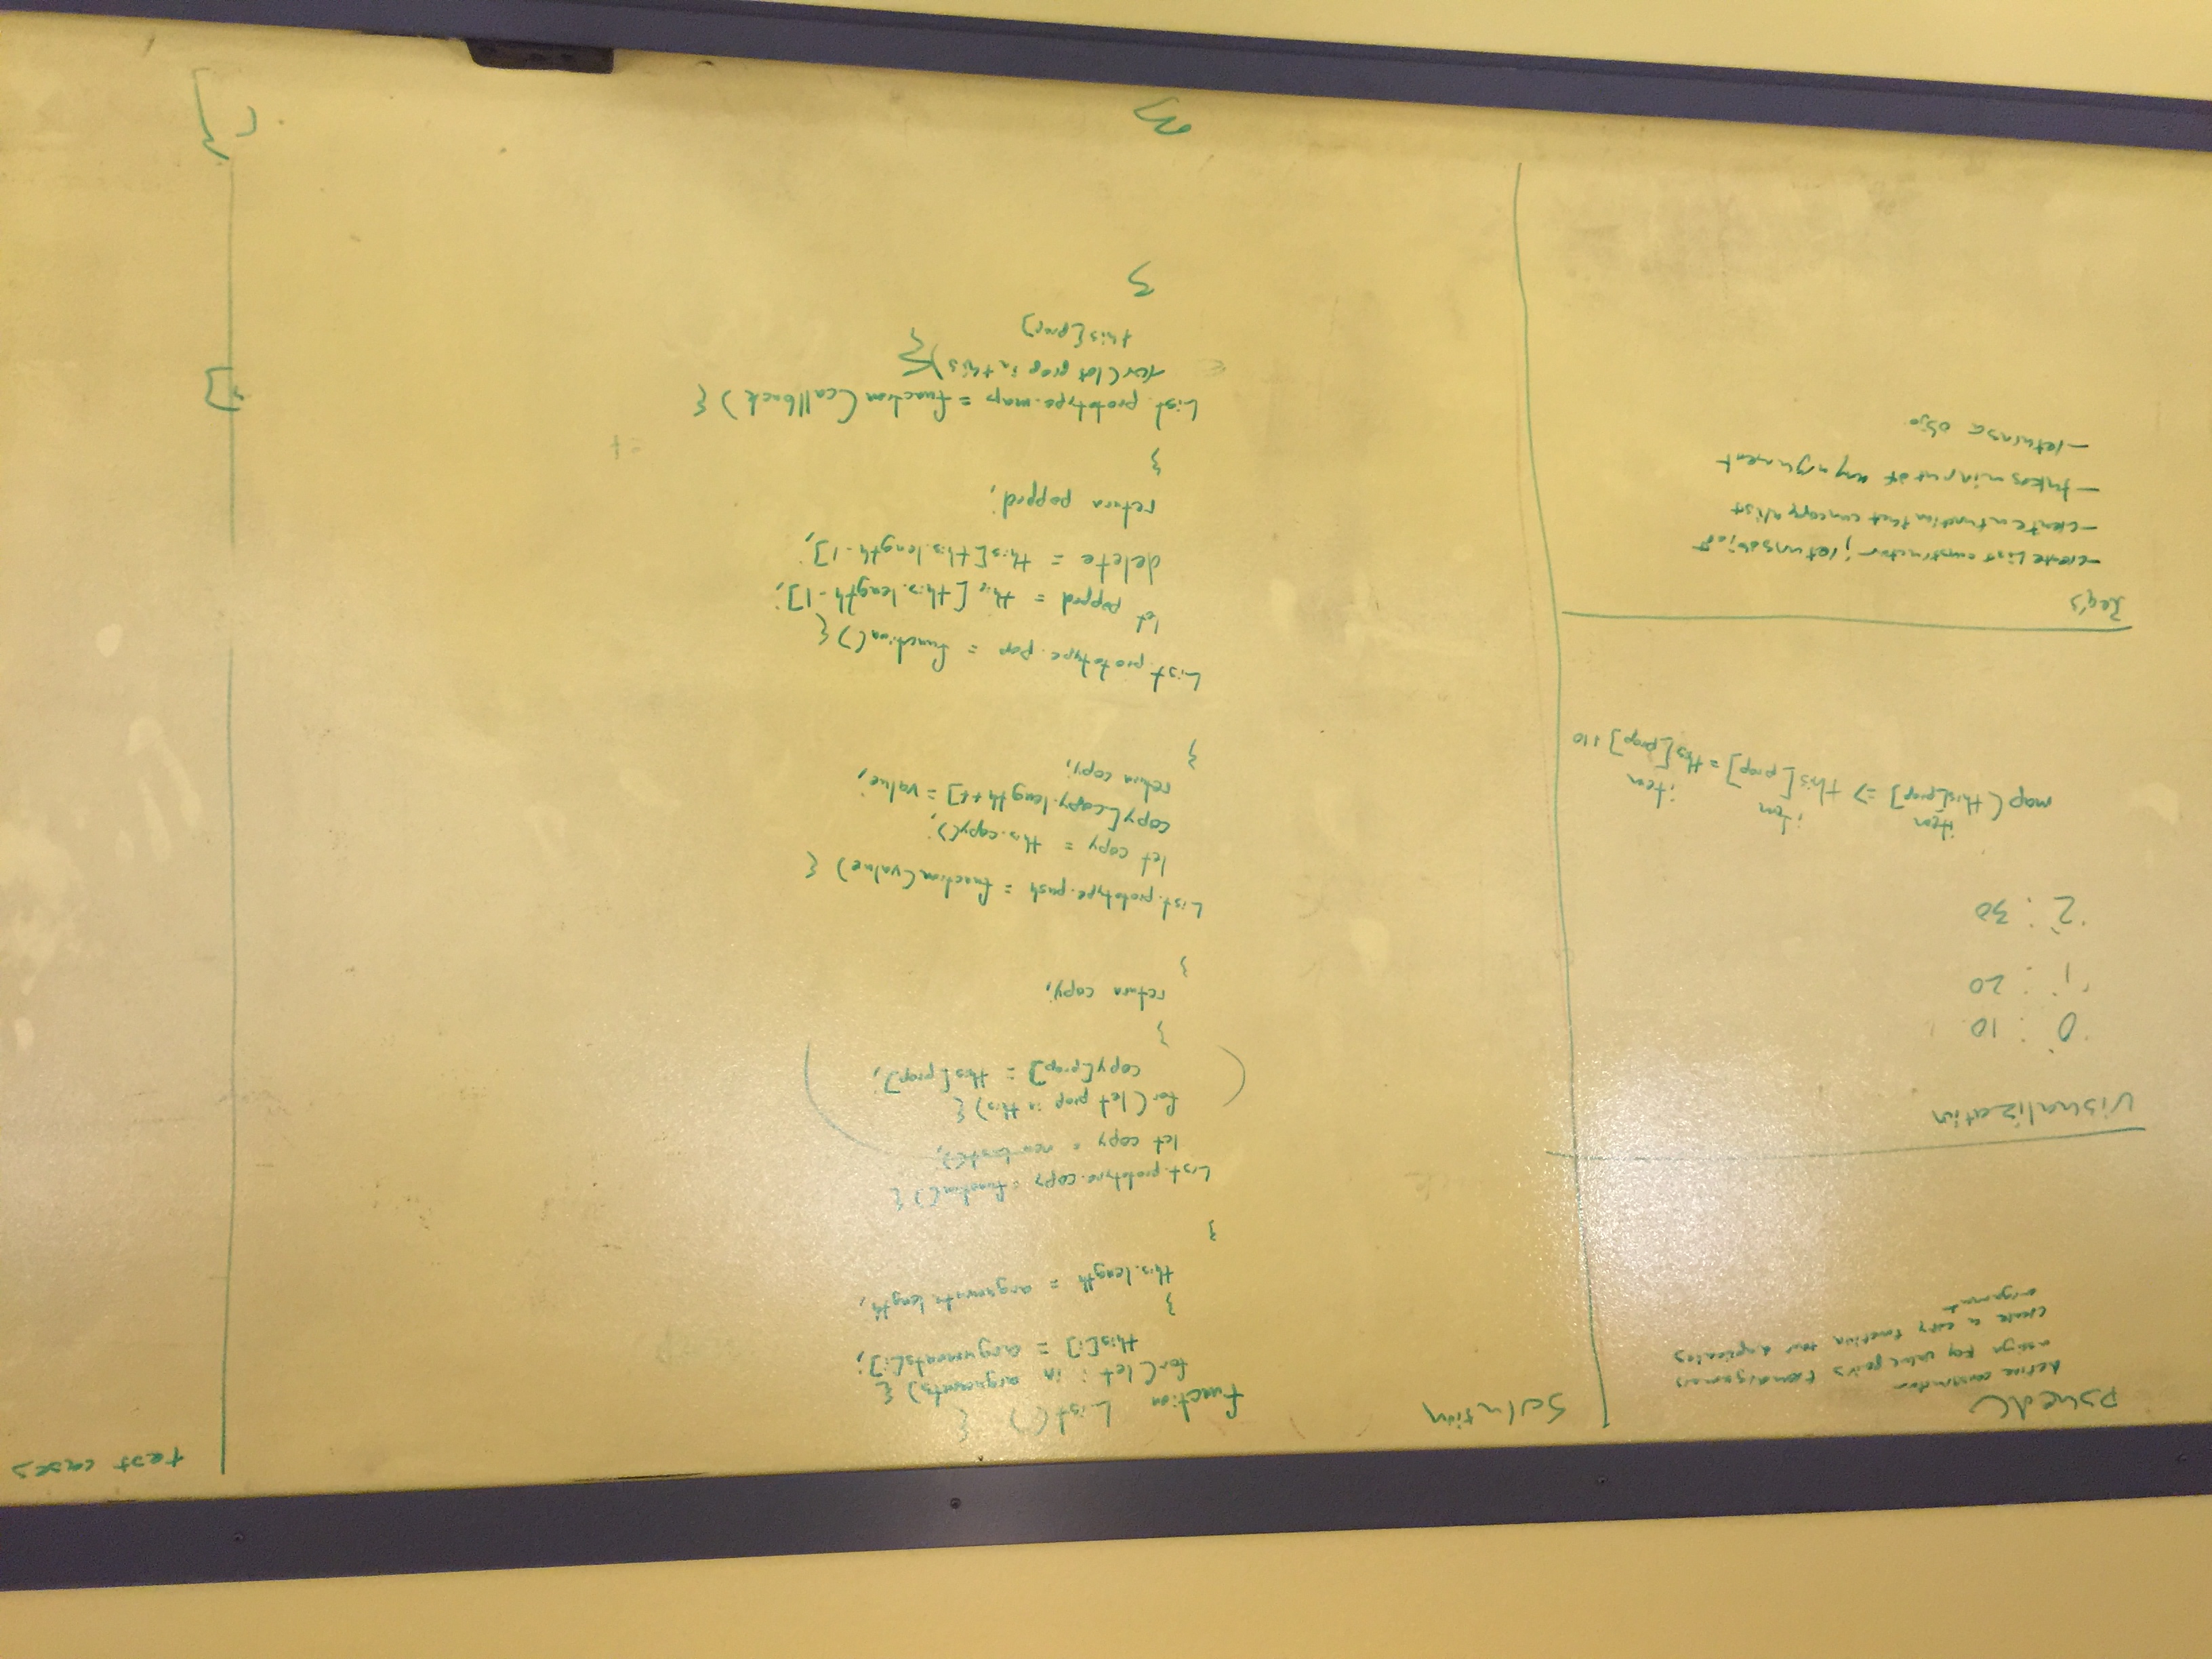 PsuedC
define constructor
assign key value pairs from arguments
create a copy function that duplicates
argument
visualization
'0' : 10
'1' : 20
'2' : 30
item item item
map(this[prop] => this[prop] = this[prop] + 10
Req's
- create List constructor ; returns object
- create a function that can copy a list
- takes in input of any argument
- returns a obj.
Solution
function List() {
for(let i in arguments) {
this[i] = arguments[i];
}
this.length = arguments.length;
}
List.prototype.copy = function() {
let copy = new List();
for(let prop in this) {
copy[prop] = this[prop];
}
return copy;
}
List.prototype.push = function(value) {
let copy = this.copy();
copy[copy.length++] = value;
return copy;
}
List.prototype.pop = function() {
let popped = this[this.length-1];
delete = this[this.length-1];
return popped;
}
List.prototype.map = function(callback) {
for(let prop in this) {
this[prop]
}
}
test cases